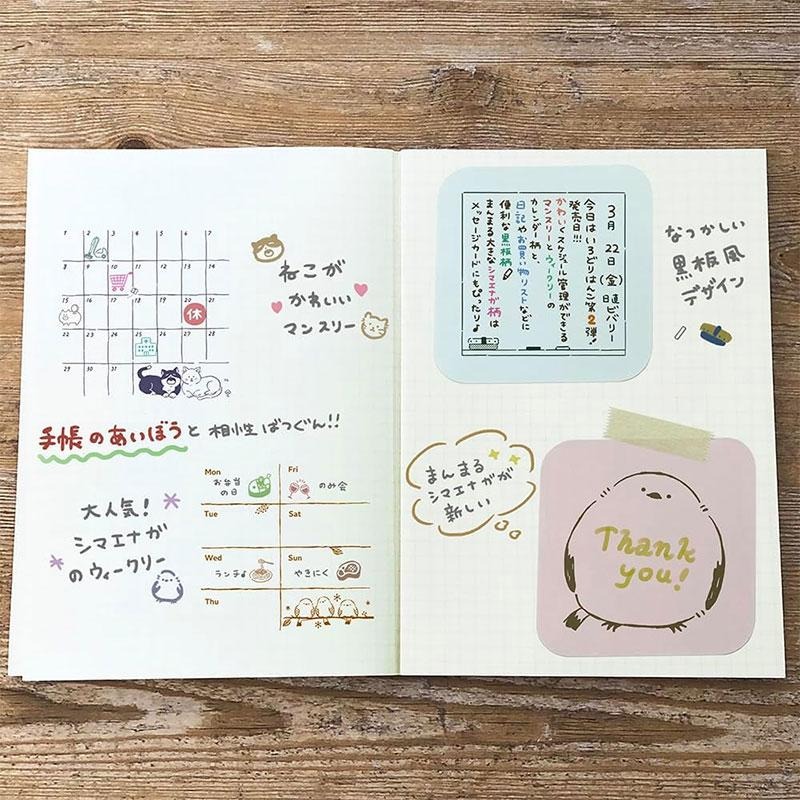 1 2 3 4 5 6 7
8 9 10 11 12 13 14
15 16 17 18 19 20 21
休
22 23 24 25 26 27 28
29 30 31
ねこが
かわいい
マンスリー
手帳のあいぼうと相性ばつぐん!!
大人気!
シマエナガ
のウィークリー
Mon
お弁当
の日
Fri
のみ会
Tue
Sat
Wed
ランチ♪
Sun
やきにく
Thu
3月 22日(金) 日直 ビバリー
今日はいろどりはんこ第2弾!
発売日!!!
かわいくスケジュール管理ができる
マンスリーとウィークリーの
カレンダー柄と、
日記やお買い物リストなどに
便利な黒板柄
まんまる大きなシマエナガ柄は
メッセージカードにもぴったり♪
なつかしい
黒板風
デザイン
まんまる
シマエナガが
新しい
Thank
you!